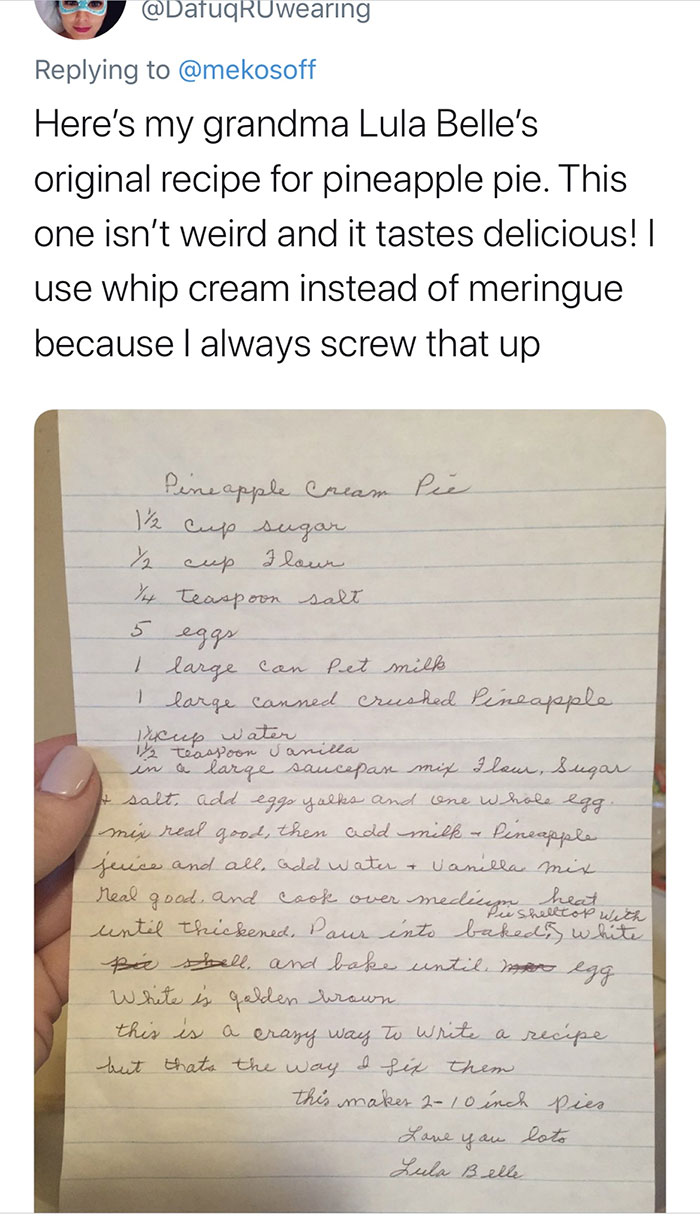 @DafuqRUwearing
Replying to @mekosoff
Here's my grandma Lula Belle's
original recipe for pineapple pie. This
one isn't weird and it tastes delicious! I
use whip cream instead of meringue
because I always screw that up
Pineapple Cream Pie
1½ cup sugar
½ cup Flour
¼ teaspoon salt
5 eggs
1 large can Pet milk
1 large canned crushed Pineapple
cup water
1½ teaspoon Vanilla
in a large saucepan mix Flour, Sugar
+ salt. add eggs yolks and one whole egg.
mix real good, then add milk + Pineapple
juice and all. add water + Vanilla mix
real good. and cook over medium heat
until thickened. Pour into baked pie shell top with 5 white
pie shell. and bake until egg
white is golden brown
this is a crazy way to write a recipe
but thats the way I fix them
this makes 2-10 inch pies
Love you lots
Lula Belle